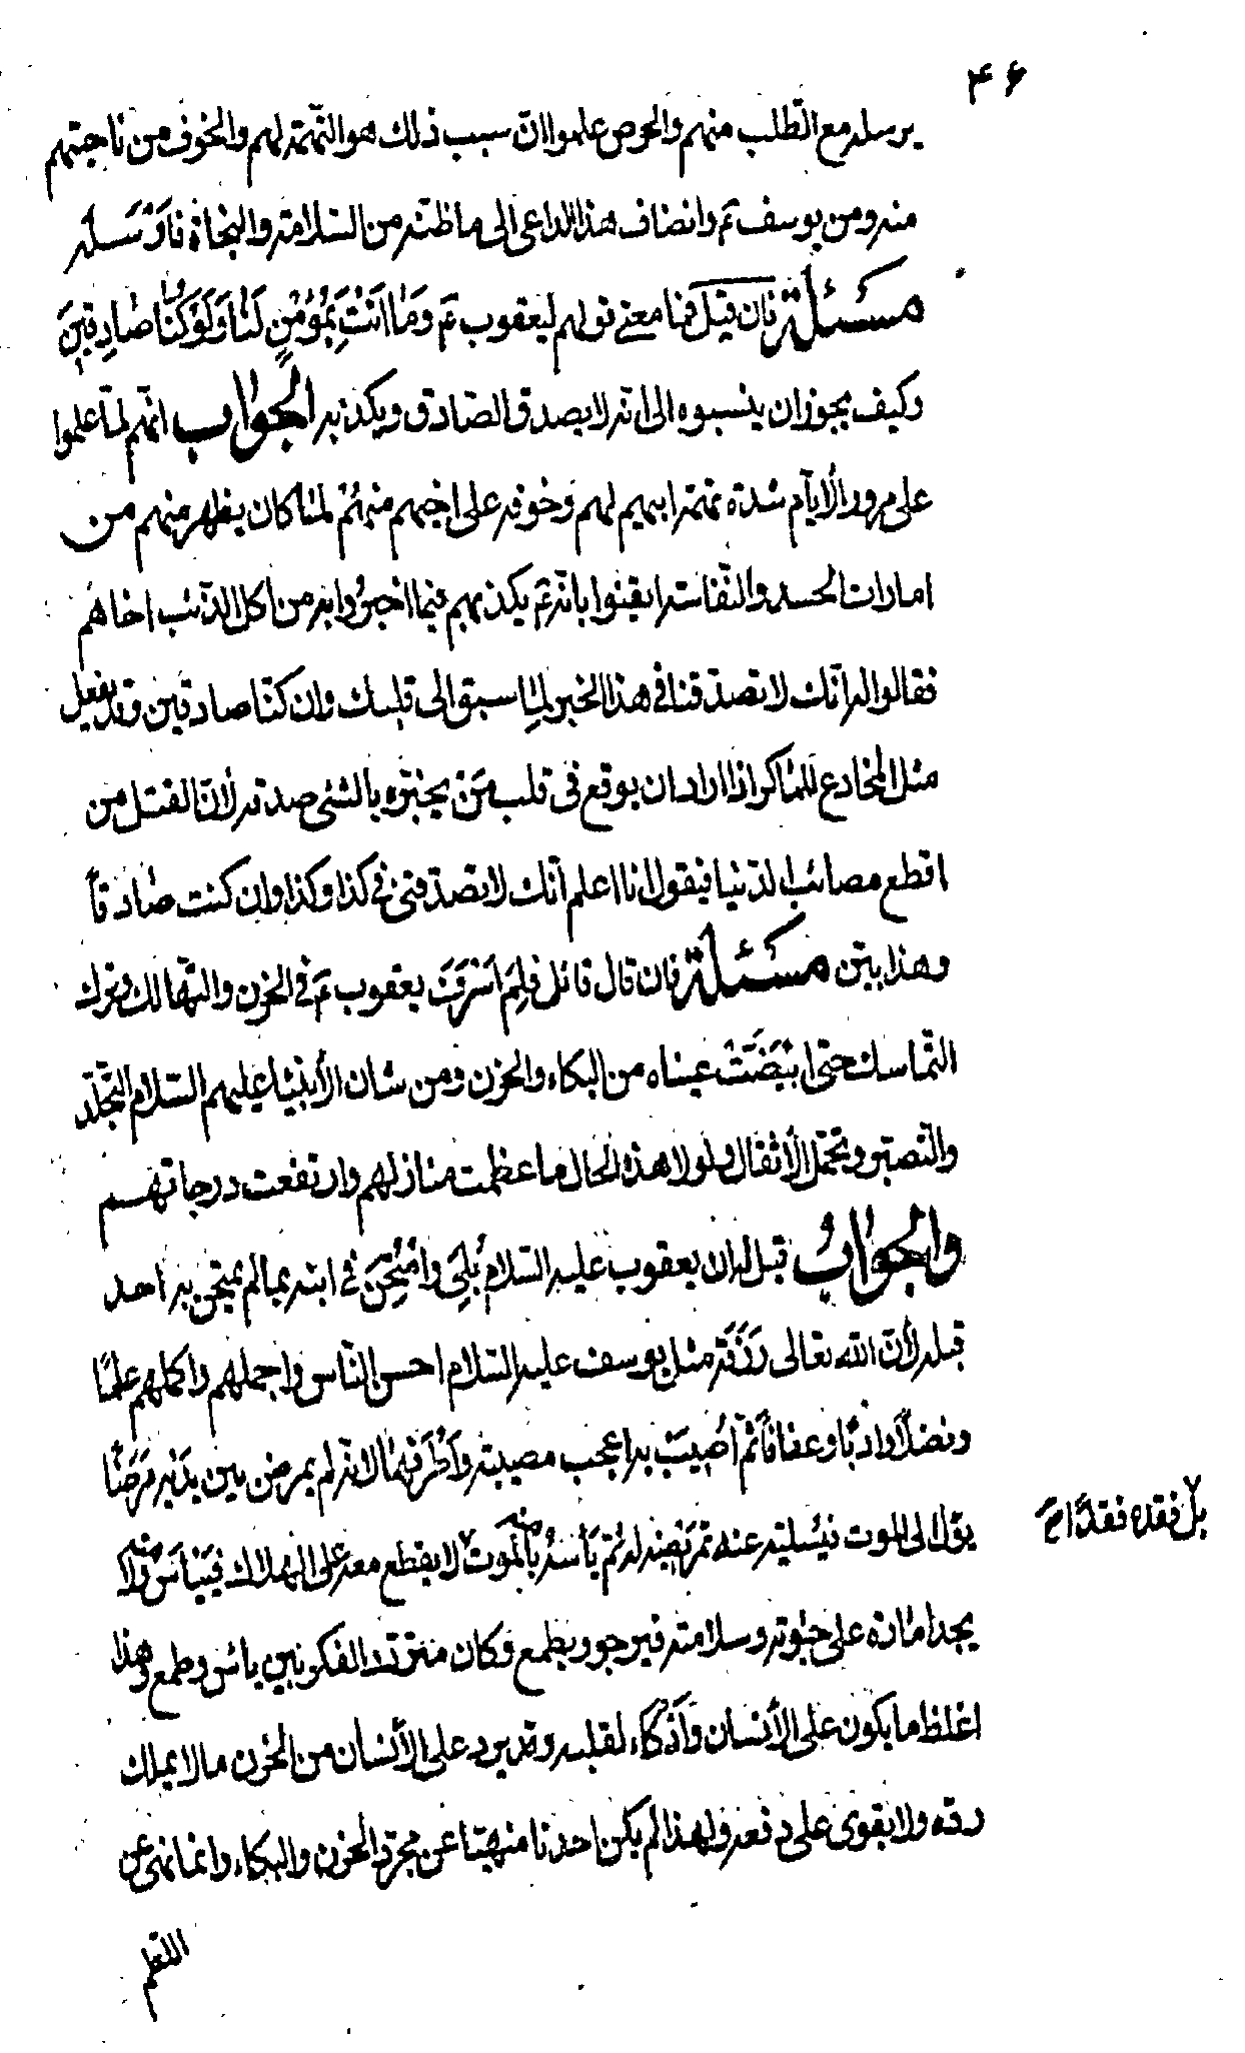 ۴۶
يرسله مع الطّلب منهم والحرص علموا انّ سبب ذلك هو التّهمة لهم والخوف من ناحيتهم
منه ومن يوسف عَم وانضاف هذا الداعى الى ما ظنّه من السّلامة والنجاة فارْسَله
مسئلة فان قيل فما معنى قولهم ليعقوب عَم وَمٰا اَنْتَ بِمُؤْمِنٍ لَنٰا وَلَوْ كُنّٰا صٰادِقِينَ
وكيف يجوز ان ينسبوه الى انّه لا يصدق الصّادق ويكذبه الجواب انّهم لمّا علموا
على مرور الأيّام شدة تهمة ابيهم لهم وخوفه على اخيهم منهم لمٰا كان يظهر منهم من
امارات الحسد والنّفاسة ايقنوا بانّه عَم يكذبهم فيما اخبرُوا به من اكل الذّئب اخاهُم
فقالوا له انّك لا تصدّقنا فى هذا الخبر لِمٰا سبق الى قلبك وان كنّا صادقين وقد يفعل
مثل المخادع المٰاكر اذا اراد ان يوقع فى قلب مَنْ يخبره بالشّئ صدقه لأنّ القتل من
افظع مصائب الدّنيا فيقول انا اعلم انّك لا تصدّقنى فى كذا وكذا وان كنت صٰادقاً
وهذا بيّن مسئلة فان قال قائل فلِمَ اسْرَفَ يعقوب عَم فى الحزن والتّهالك وترك
التّماسك حتى ابْيَضَّتْ عيناه من البكاء والحزن ومن شان الأنبيٰا عليهم السّلام التّجلّد
والتّصبّر وتحمّل الأثقال ولولا هذه الحال ما عظمت منازلهم وارتفعت درجاتهم
والجواب قيل له ان يعقوب عليه السّلام بُلِىَ وامْتُحِنَ فى ابنه بما لم يمتحن به احد
قبله لأنّ الله تعالى رَزَقَه مثل يوسف عليه السّلام احسن النّاس واجملهم واكملهم علمًا
وفضلًا وادبًا وعفافًا ثمّ اُصيبَ به اعجب مصيبة واَطْرَفهٰا لانّه لم يمرض بين يديه مَرَضًا
يؤل الى الموت فيُسليه عنه تمريضه له ثمّ يَأسه منه بالموت بل فقده فقدًا لا يقطع معه على الهلاك فييأس منه ولا
يجد امٰارة على حيٰوته وسلامته فيرجو ويطمع وكان متردّد الفكر بين يائس وطمع وهذا
اغلظ ما يكون على الأنسان وَأنكاء لقلبه وقد يرد على الأنسان من الحزن ما لا يملك
ردّه ولا يقوى على دفعه ولهذا لم يكن احدنا منهيّا عن مجرّد الحزن والبكاء وانّما نهى عن
اللّطم